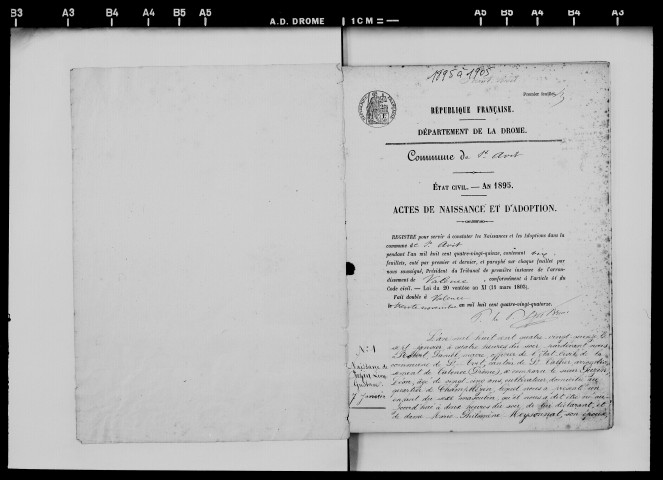 B3 A3 B4 A4 B5 A5 A.D. DROME 1 CM = A5 B5 A4 B4 A3
1895 à 1905
Premier feuillet
RÉPUBLIQUE FRANÇAISE.
DÉPARTEMENT DE LA DROME.
Commune de St Avit
ÉTAT CIVIL. — AN 1895.
ACTES DE NAISSANCE ET D'ADOPTION.
REGISTRE pour servir à constater les Naissances et les Adoptions dans la
commune de St Avit
pendant l'an mil huit cent quatre-vingt-quinze, contenant
feuillets, coté par premier et dernier, et paraphé sur chaque feuillet par
nous soussigné, Président du Tribunal de première instance de l'arron-
dissement de Valence, conformément à l'article 41 du
Code civil. — Loi du 20 ventôse an XI (11 mars 1803).
Fait double à Valence
le trente novembre an mil huit cent quatre-vingt-quatorze.
N° 1
Naissance de
7 Janvier
L'an mil huit cent quatre vingt quinze, le
sept janvier, à quatre heures du soir, pardevant nous,
maire, officier de l'Etat Civil de la
commune de St Avit, canton de St Vallier, arrondis-
sement de Valence (Drôme), a comparu le sieur
Léon, âgé de vingt cinq ans, cultivateur, domicilié au
quartier de lequel nous a présenté un
enfant du sexe masculin, qu'il nous a dit être né au-
jourd'hui à deux heures du soir, de lui déclarant, et
de dame Philomène Meyssonnat, son épouse,